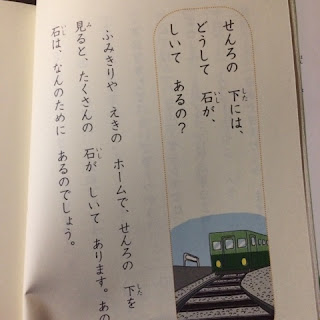 せんろの　下には、
どうして　石が、
しいて　あるの？
ふみきりや　えきの　ホームで、せんろの　下を
見ると、たくさんの　石が　しいて　あります。あの
石は、なんのために　あるのでしょう。